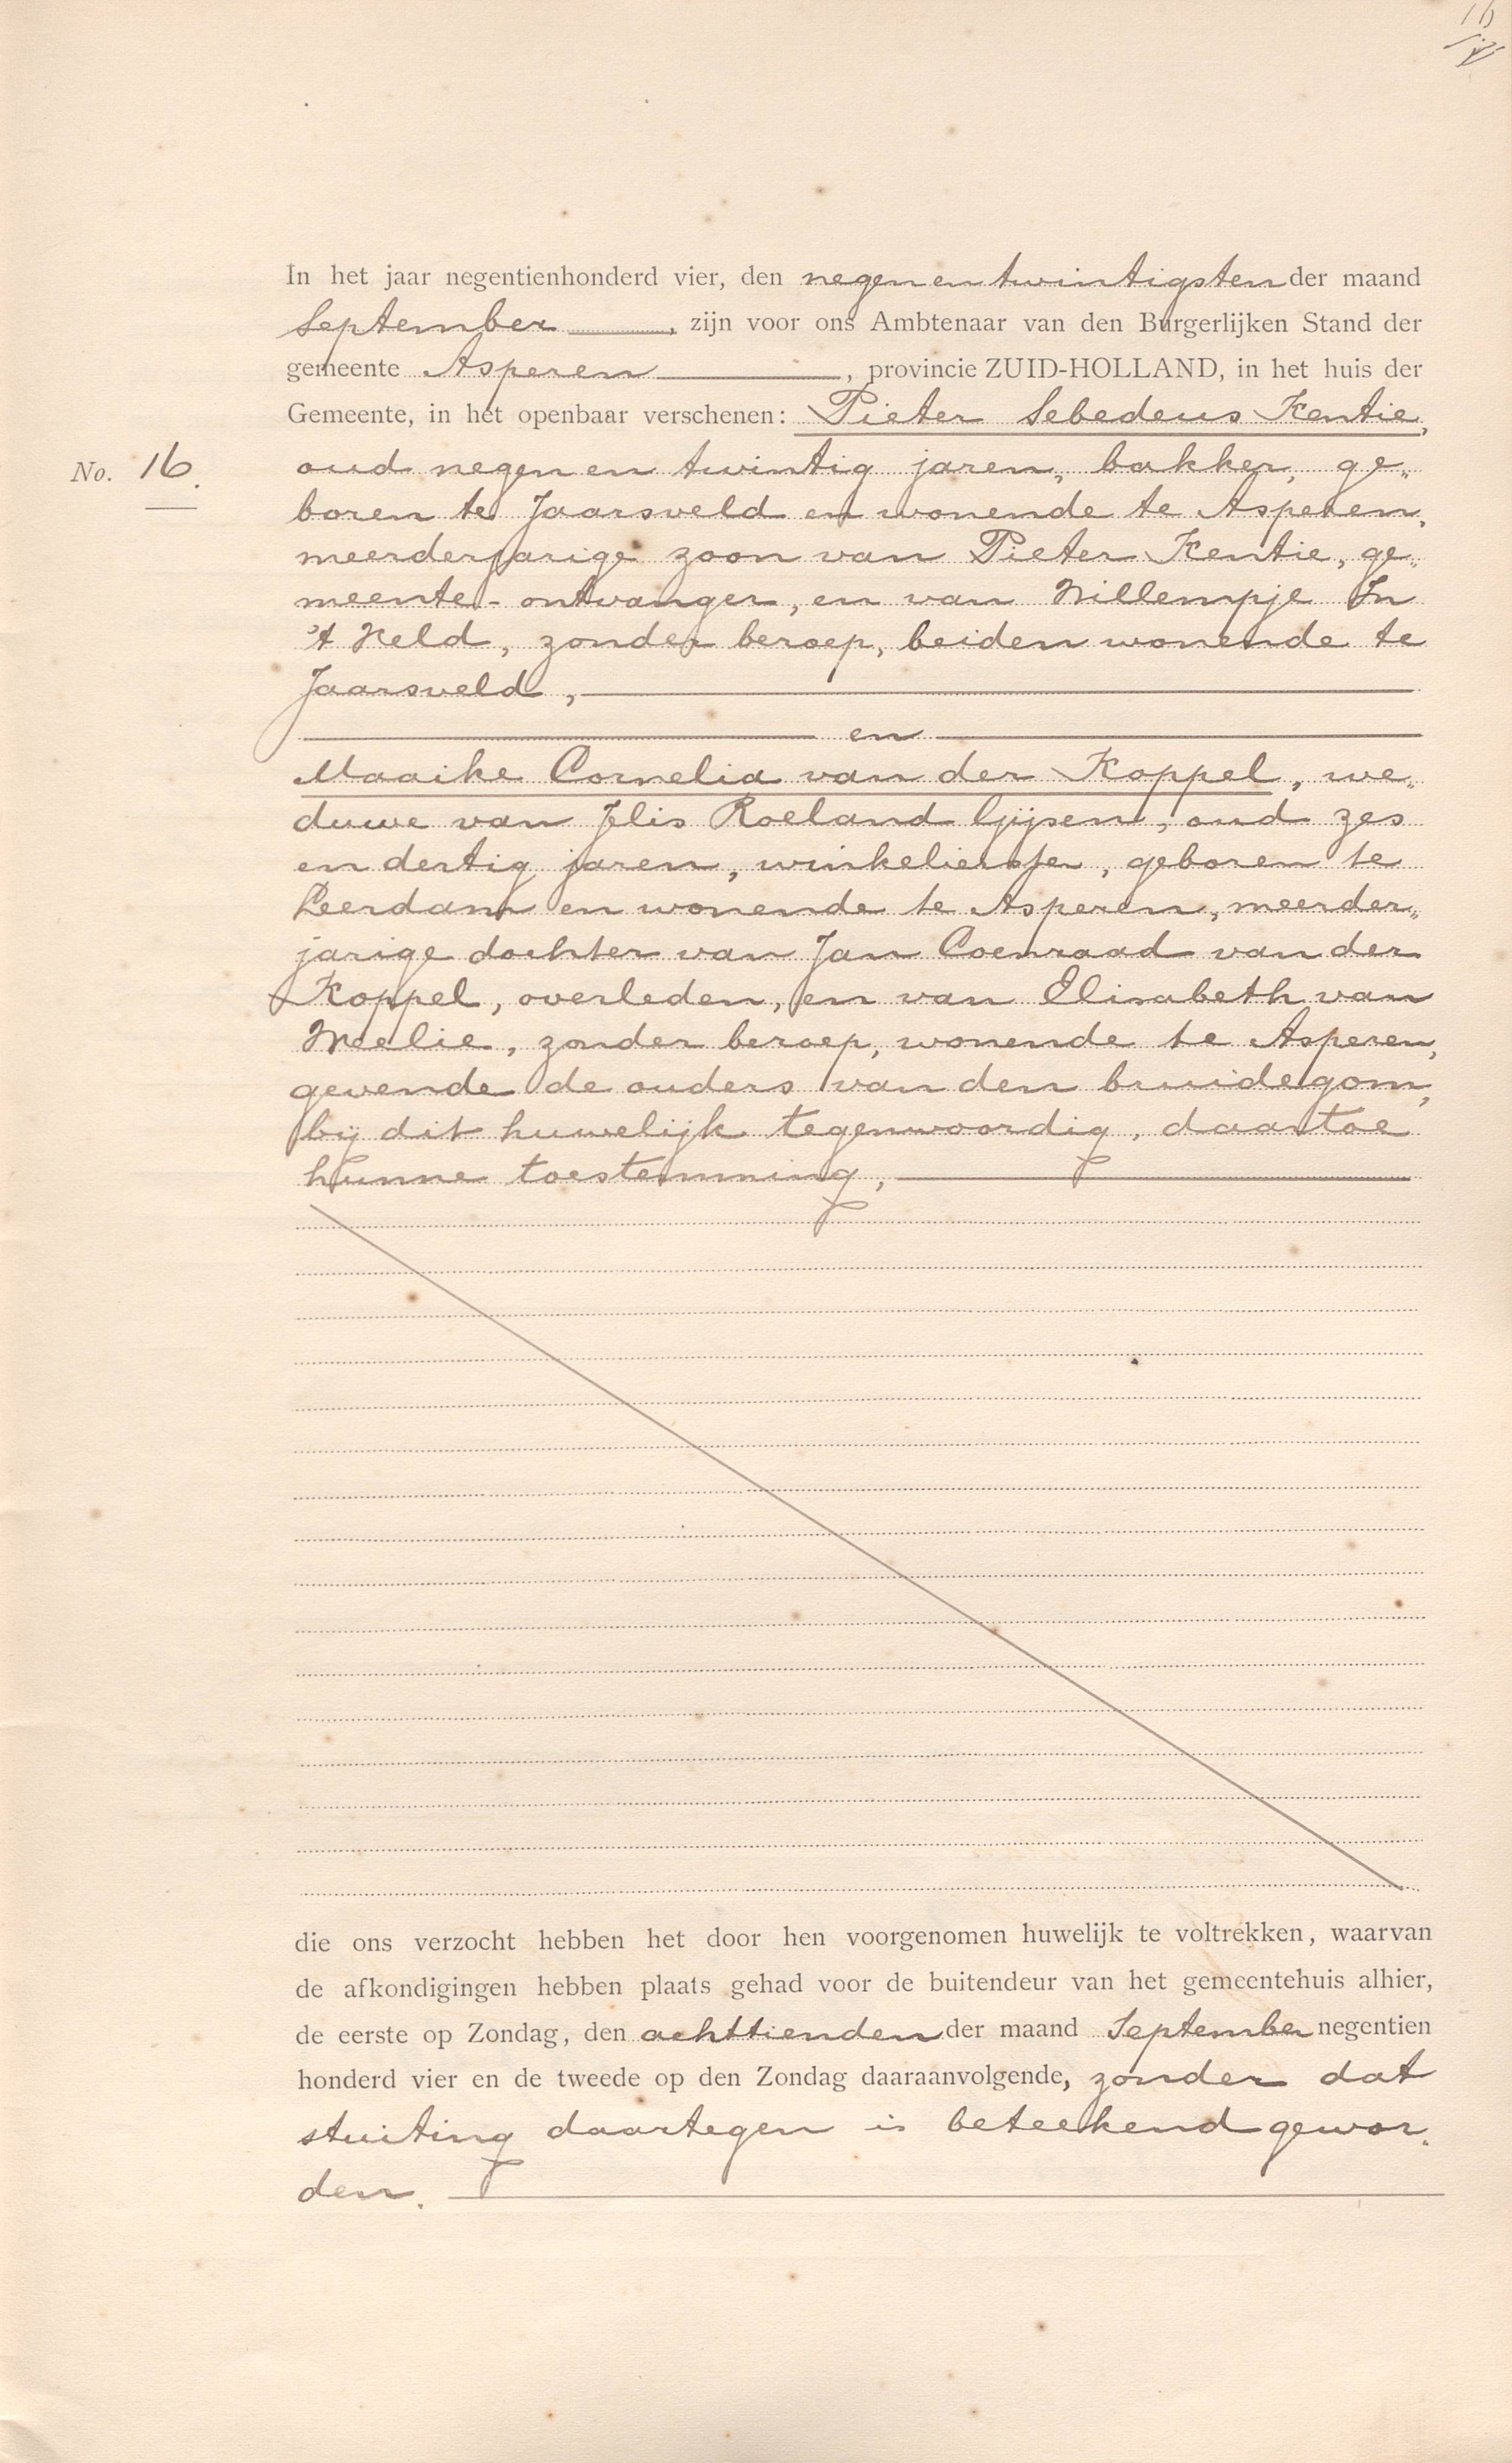 16
In het jaar negentienhonderd vier, den negen en twintigsten der maand
September, zijn voor ons Ambtenaar van den Burgerlijken Stand der
gemeente Asperen, provincie ZUID-HOLLAND, in het huis der
Gemeente, in het openbaar verschenen: Pieter Sebedeus Kentie,
No. 16.
oud negen en twintig jaren, bakker, ge„
boren te Jaarsveld en wonende te Asperen,
meerderjarige zoon van Pieter Kentie, ge„
meente-ontvanger, en van Willempje In
't Veld, zonder beroep, beiden wonende te
Jaarsveld,
en
Maaike Cornelia van der Koppel, we„
duwe van Jelis Roeland Gijsen, oud zes
en dertig jaren, winkelierster, geboren te
Leerdam en wonende te Asperen, meerder„
jarige dochter van Jan Coenraad van der
Koppel, overleden, en van Elisabeth van
Meelie, zonder beroep, wonende te Asperen,
gevende de ouders van den bruidegom,
bij dit huwelijk tegenwoordig, daartoe
hunne toestemming,
die ons verzocht hebben het door hen voorgenomen huwelijk te voltrekken, waarvan
de afkondigingen hebben plaats gehad voor de buitendeur van het gemeentehuis alhier,
de eerste op Zondag, den achttienden der maand September negentien
honderd vier en de tweede op den Zondag daaraanvolgende, zonder dat
stuiting daartegen is beteekend gewor„
den.